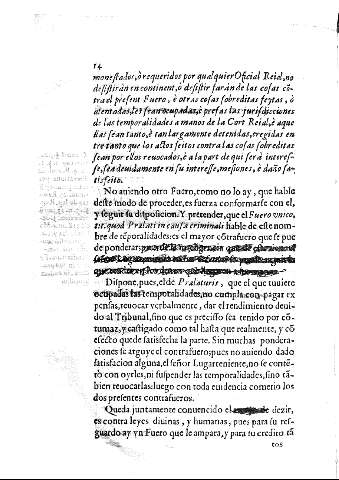 14
monestados, ò requeridos por qualquier Oficial Reial, no
desistiràn encontinent, ò desistir faràn de las cosas cõ-
tra el present Fuero, è otras cosas sobreditas feytas, ò
atentadas, les sean ocupadas, è presas las jurisdicciones
de las temporalidades a manos de la Cort Reial, è aque
llas sean tanto, è tan largamente detenidas, è regidas en
tre tanto que los actos feitos contra las cosas sobreditas
sean por ellos revocados, è a la part de qui serà interes-
se, sea deuidamente en su interesse, mesiones, è daño sa-
tisfeito.
No auiendo otro Fuero, como no lo ay, que hable
deste modo de proceder, es fuerza conformarse con el,
y seguir su disposicion. Y pretender, que el Fuero vnico,
tit. quod Prælati in causa criminali hable de este nom-
bre de tẽporalidades: es el mayor cõtrafuero que se pue
de ponderar;
Dispone, pues, el de Prælaturis, que el que tuuiere
ocupadas las temporalidades, no cumpla con pagar ex
pensas, reuocar verbalmente, dar el rendimiento deui-
do al Tribunal, sino que es preciso sea tenido por cõ-
tumaz, y castigado como tal hasta que realmente, y cõ
efecto quede satisfecha la parte. Sin muchas pondera-
ciones se arguye el contrafuero; pues no auiendo dado
satisfacion alguna, el señor Lugarteniente, no se contẽ-
tò con oyrles, ni suspender las temporalidades, sino tã-
bien reuocarlas: luego con toda euidencia cometiò los
dos presentes contrafueros.
Queda juntamente conuencido el de dezir,
es contra leyes diuinas, y humanas, pues para su res-
guardo ay vn Fuero que le ampara, y para su credito tã
tos